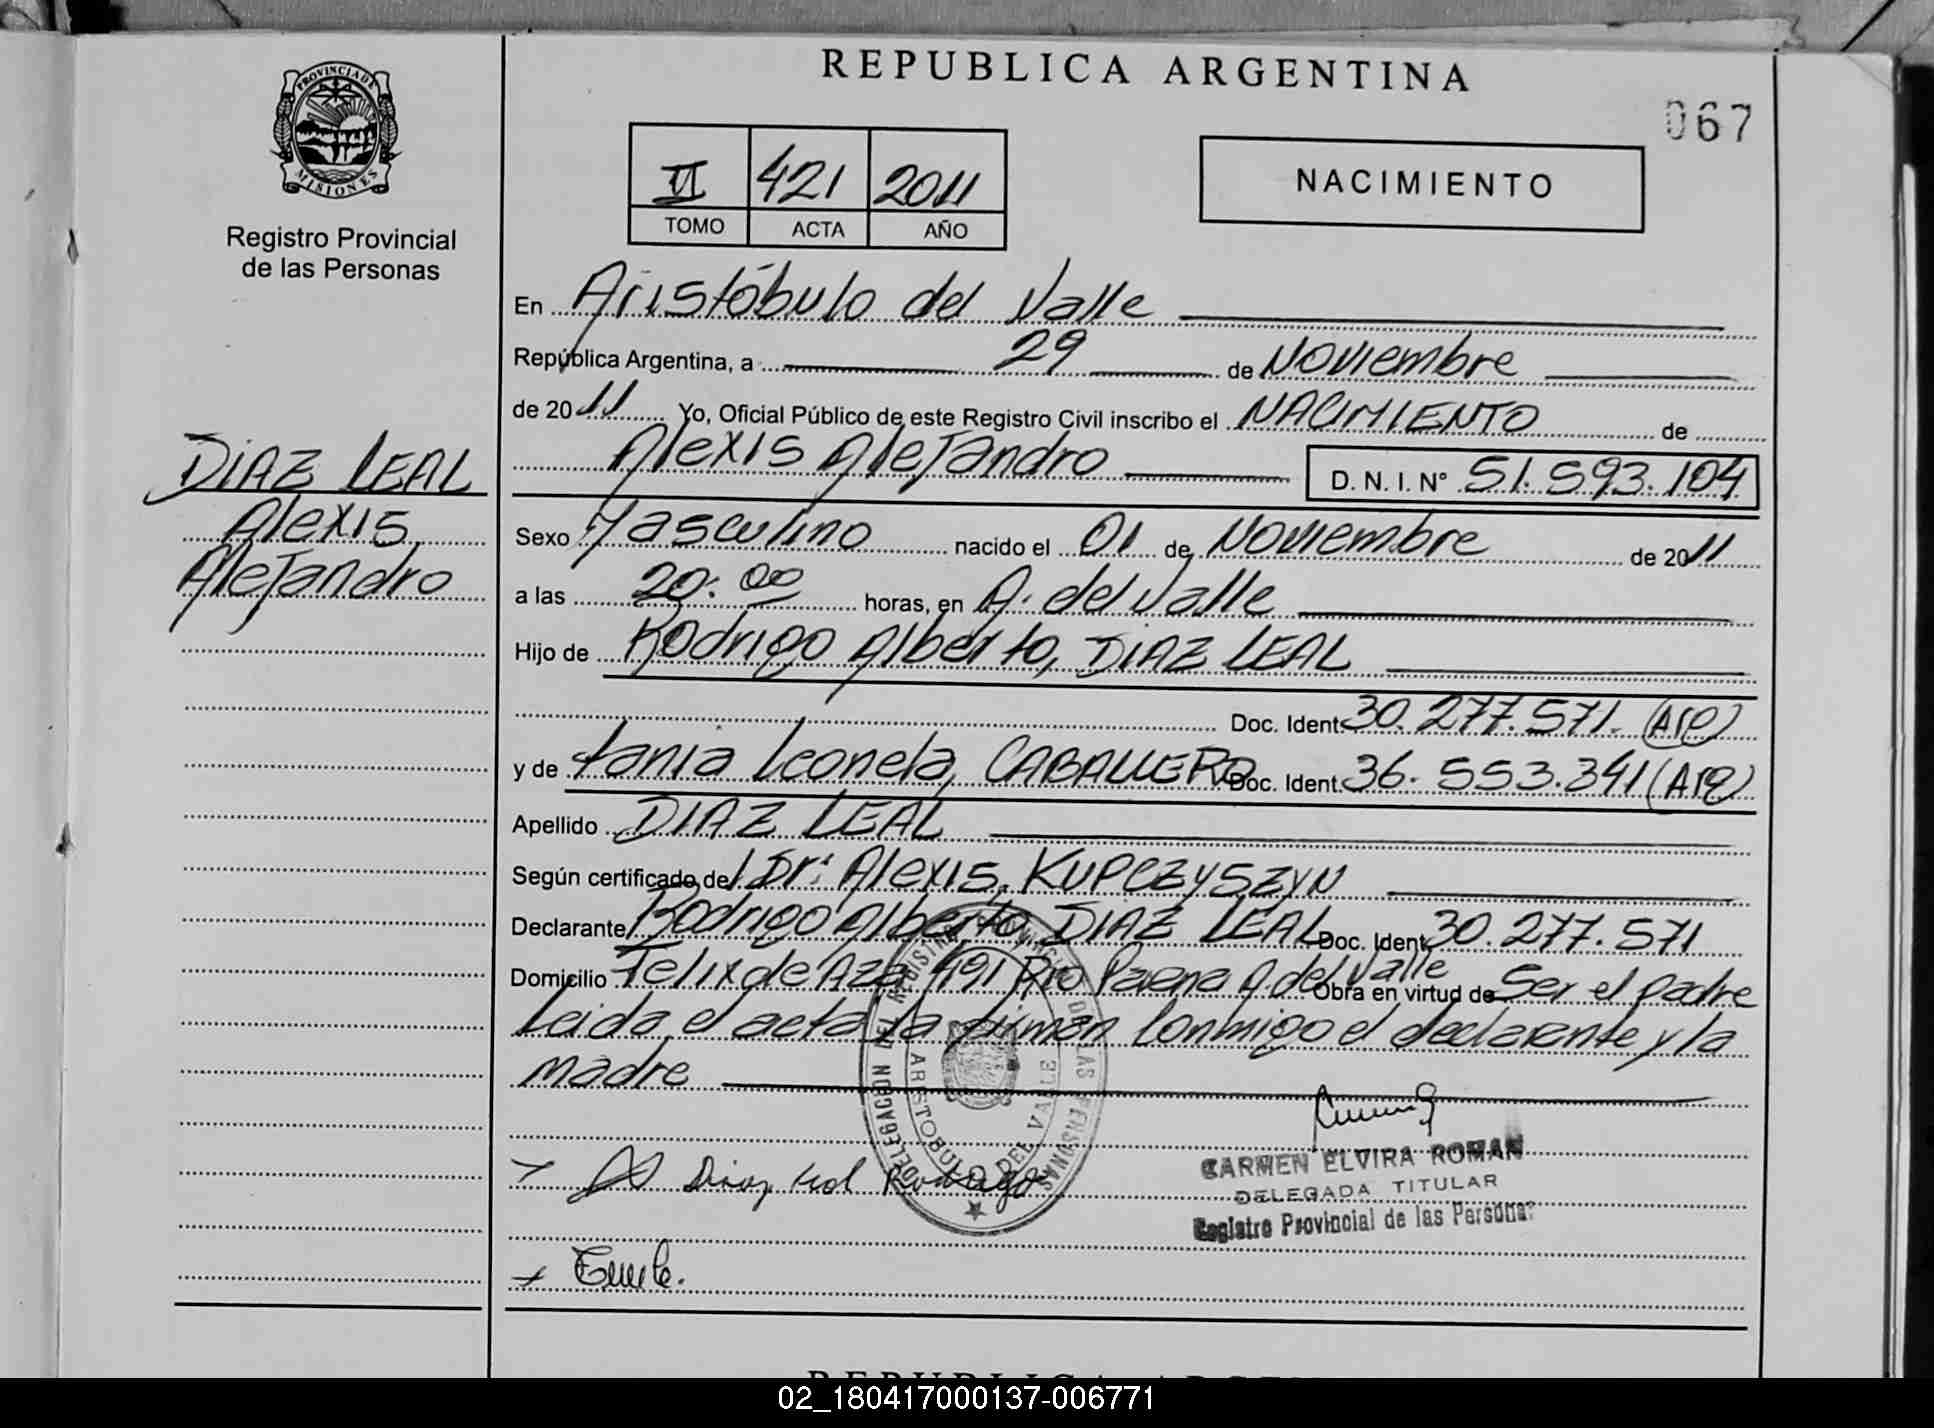 REPUBLICA ARGENTINA
067
PROVINCIA DE MISIONES
Registro Provincial
de las Personas
II 421 2011
TOMO ACTA AÑO
NACIMIENTO
En Aristóbulo del Valle
República Argentina, a 29 de Noviembre
de 2011 Yo, Oficial Público de este Registro Civil inscribo el NACIMIENTO de
Alexis Alejandro D. N. I. N° 51.593.104
DIAZ LEAL
Alexis
Alejandro
Sexo Masculino nacido el 01 de Noviembre de 2011
a las 20:00 horas, en A. del Valle
Hijo de Rodrigo Alberto, DIAZ LEAL
Doc. Ident. 30.277.571. (Arg)
y de Tania Leonela, CABALLERO Doc. Ident. 36.553.341 (Arg)
Apellido DIAZ LEAL
Según certificado del Dr: Alexis, KUPCZYSZYN
Declarante Rodrigo Alberto, DIAZ LEAL Doc. Ident. 30.277.571
Domicilio Felix de Aza 491 Bro A. del Valle Obra en virtud de Ser el padre
Leida el acta la firman Conmigo el declarante y la
madre
DELEGACION DEL REGISTRO PROVINCIAL DE LAS PERSONAS
ARISTOBULO DEL VALLE
CARMEN ELVIRA ROMAN
DELEGADA TITULAR
Registro Provincial de las Personas
Diaz Leal Rodrigo
02_180417000137-006771